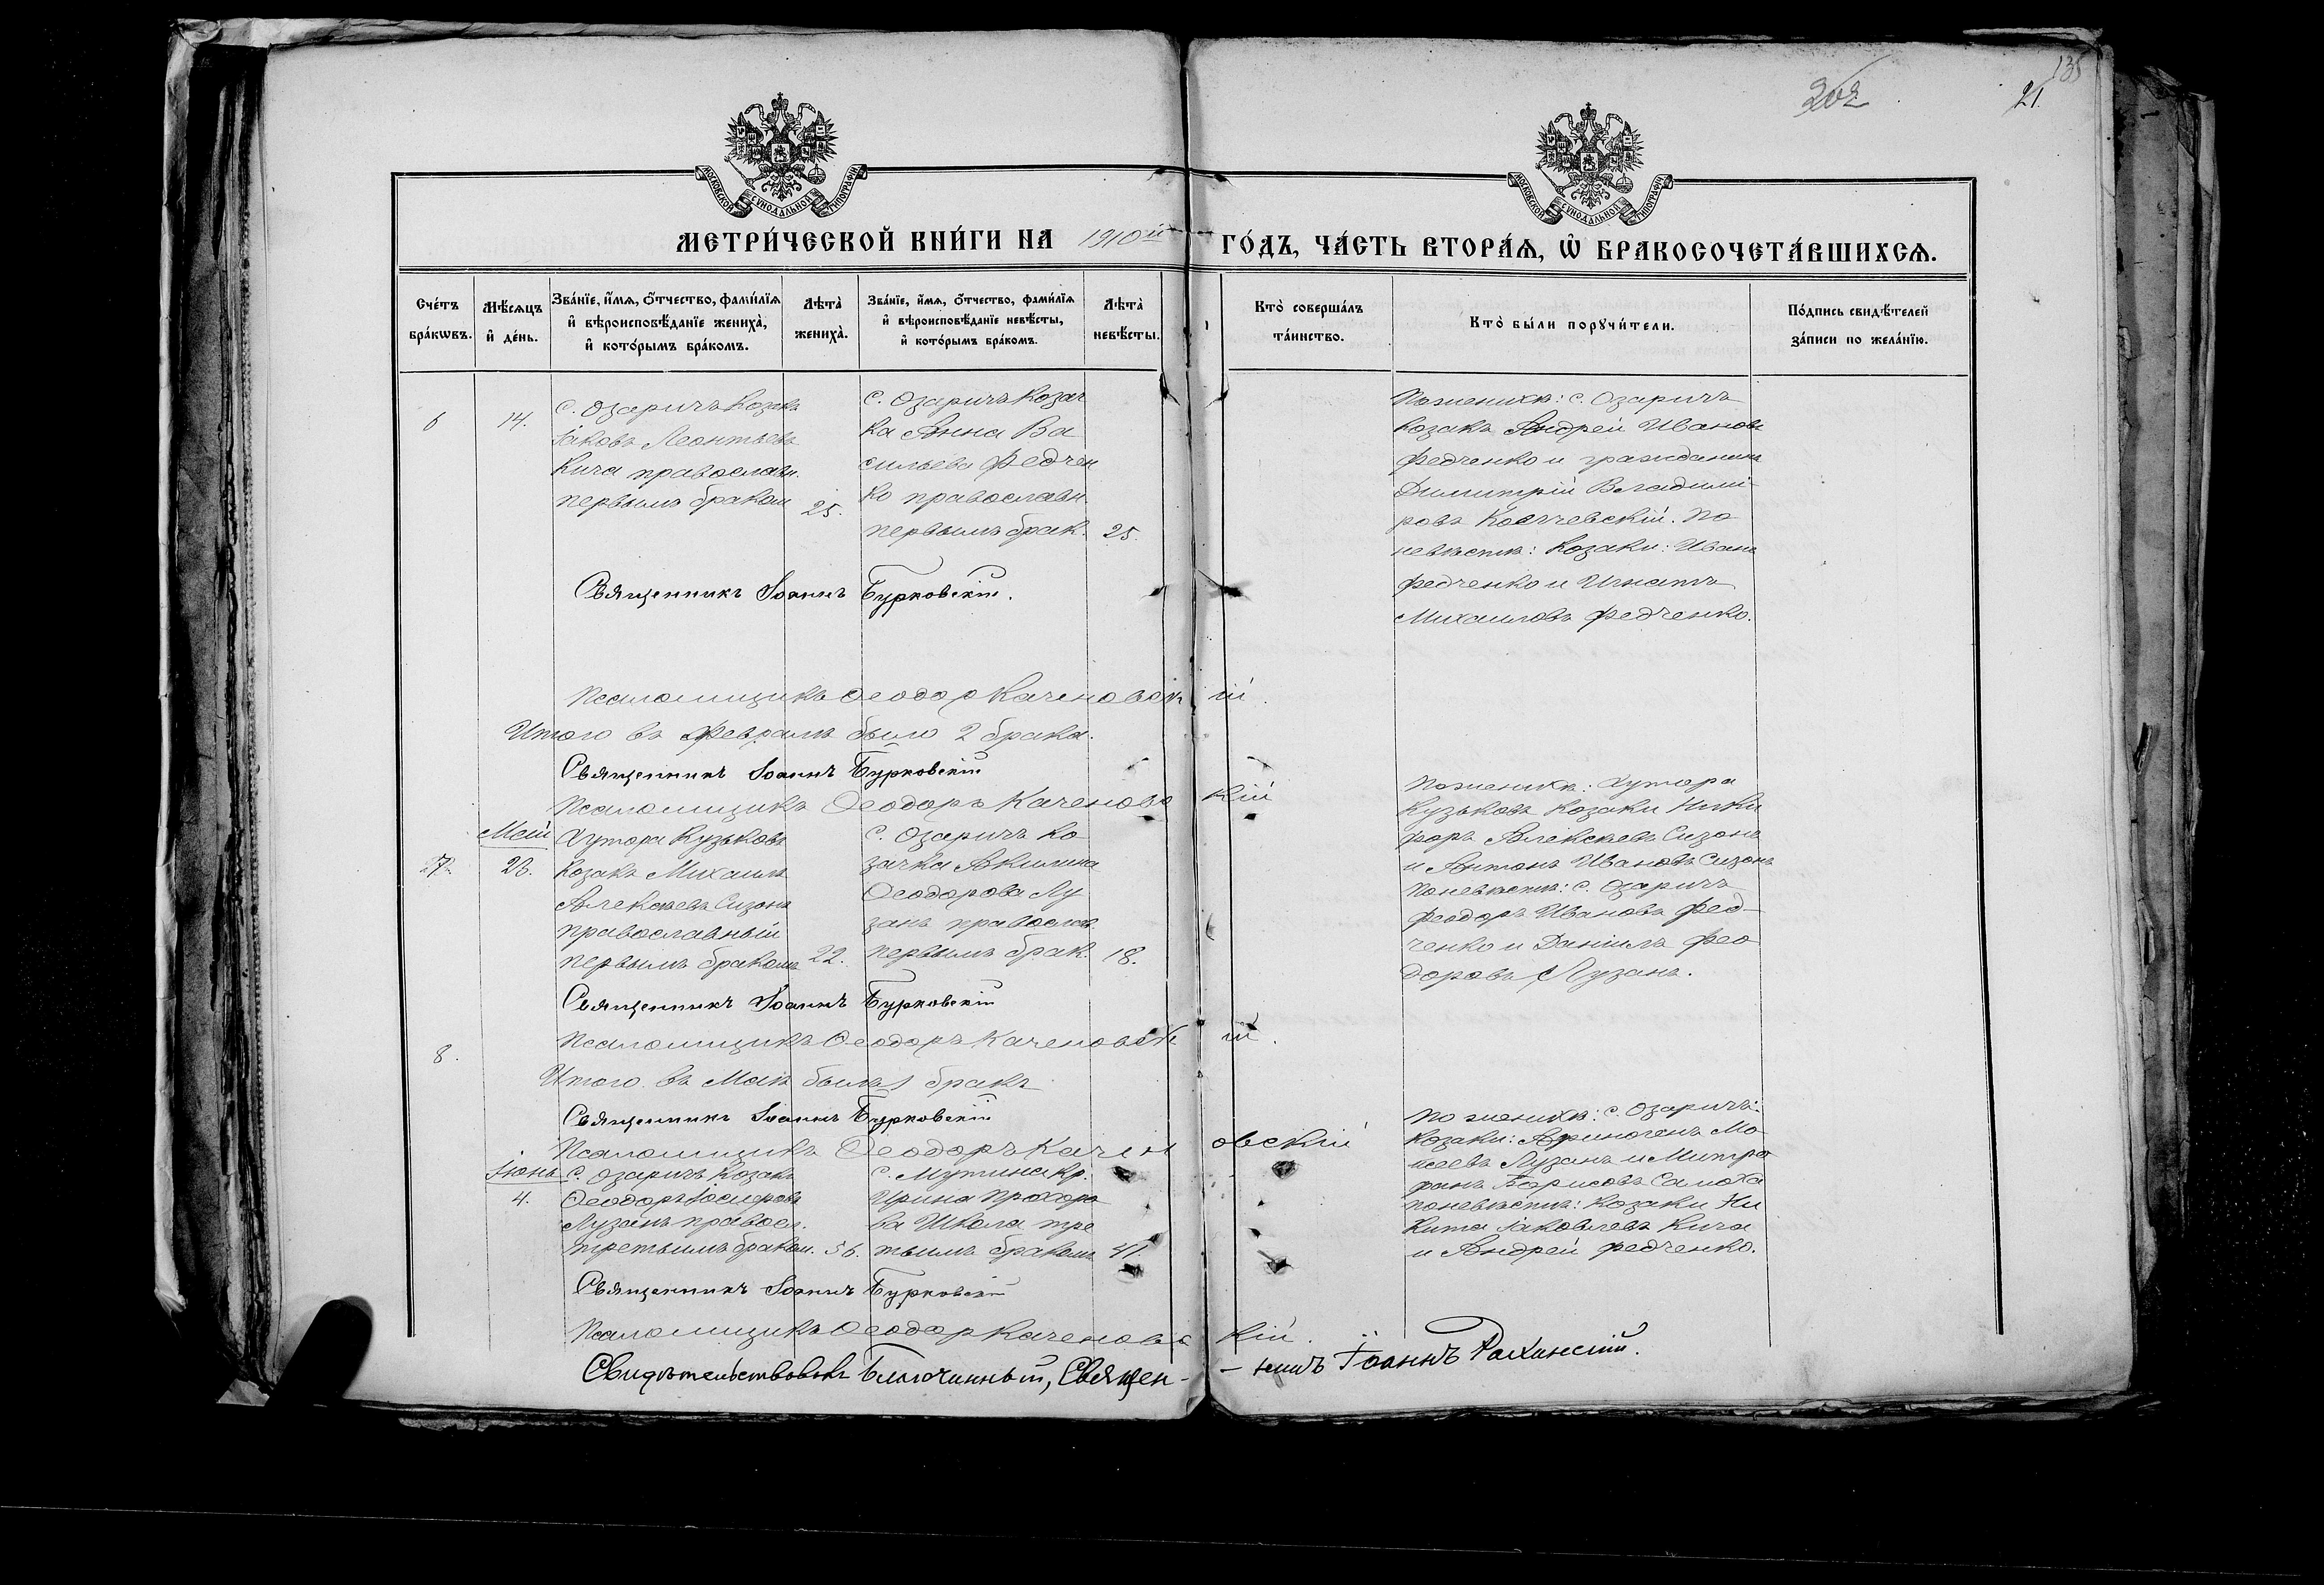 135
202
21.
МОСКОВСКОЙ СѴНОДАЛЬНОЙ ТИПОГРАФІИ
МОСКОВСКОЙ СѴНОДАЛЬНОЙ ТИПОГРАФІИ
МЕТРИ́ЧЕСКОЙ КНИ́ГИ НА 1910й ГО́ДЪ, ЧА́СТЬ ВТОРА́Ѧ, Ѡ҆ БРАКОСОЧЕТА́ВШИХСѦ.
Сче́тъ бра́кѡвъ.
Мѣ́сѧцъ и҆ де́нь.
Зва́нїе, и҆́мѧ, ѻ҆́тчество, фами́лїѧ
и҆ вѣроисповѣ́данїе жениха̀,
и҆ кото́рымъ бра́комъ.
Лѣта̀ жениха̀.
Зва́нїе, и҆́мѧ, ѻ҆́тчество, фами́лїѧ
и҆ вѣроисповѣ́данїе невѣ́сты,
и҆ кото́рымъ бра́комъ.
Лѣта̀ невѣ́сты.
Кто̀ соверша́лъ
та́инство.
Кто̀ бы́ли порꙋчи́тели.
По́дпись свидѣ́телей
за́писи по жела́нїю.
6
14.
с. Озаричъ козакъ
Іаковъ Леонтьевъ
Кича православн.
первымъ браком
25.
с. Озаричъ козач
ка Анна Ва
сильева Федчен
ко православн.
первымъ брак.
25.
По женихѣ: с. Озаричъ
козакъ Андрей Ивановъ
Федченко и гражданинъ
Димитрій Владими
ровъ
По
невѣстѣ: козаки: Иванъ
Федченко и Игнатъ
Михаиловъ Федченко.
Священникъ Іоаннъ Бурковскій.
Псаломщикъ Ѳеодор Каченовскій.
Итого въ Февралѣ было 2 брака.
Священникъ Іоаннъ Бурковскій
Псаломщикъ Ѳеодоръ Каченовскій
Май
23.
Хутора Кузьковъ
козакъ Михаилъ
Алексѣевъ Сизонъ
православный
первымъ бракомъ
22.
с. Озаричъ ко
зачка Акилина
Ѳеодорова Лу
занъ православ.
первымъ брак.
18.
По женихѣ: Хутора
Кузьковъ козаки Ники
форъ Алексѣевъ Сизонъ
и Антонъ Ивановъ Сизонъ
По невѣстѣ: с. Озаричъ
Феодоръ Ивановъ Фед-
ченко и Даніилъ Фео
доровъ Лузанъ.
Священникъ Іоаннъ Бурковскій
Псаломщикъ Ѳеодоръ Каченовскій.
8.
Итого въ Маѣ былъ 1 бракъ
Священникъ Іоаннъ Бурковскій
Псаломщикъ Ѳеодоръ Каченовскій
Іюнь
4.
с. Озаричъ козакъ
Ѳеодоръ Іосифовъ
Лузанъ правосл.
третьимъ браком.
56.
с. Мутина кр.
Ирина Прохоро
ва Школа тре
тьимъ бракомъ
41.
По женихѣ: с. Озаричъ:
козаки: Афиногенъ Мо
исеевъ Лузанъ и Митро
фанъ Борисовъ Самоха
по невѣстѣ: козаки Ни
кита Іаковлевъ Кича
и Андрей Федченко.
Священникъ Іоаннъ Бурковскій
Псаломщикъ Ѳеодор Каченовскій.
Свидѣтельствовалъ Благочинный, Священ-
-никъ Іоаннъ